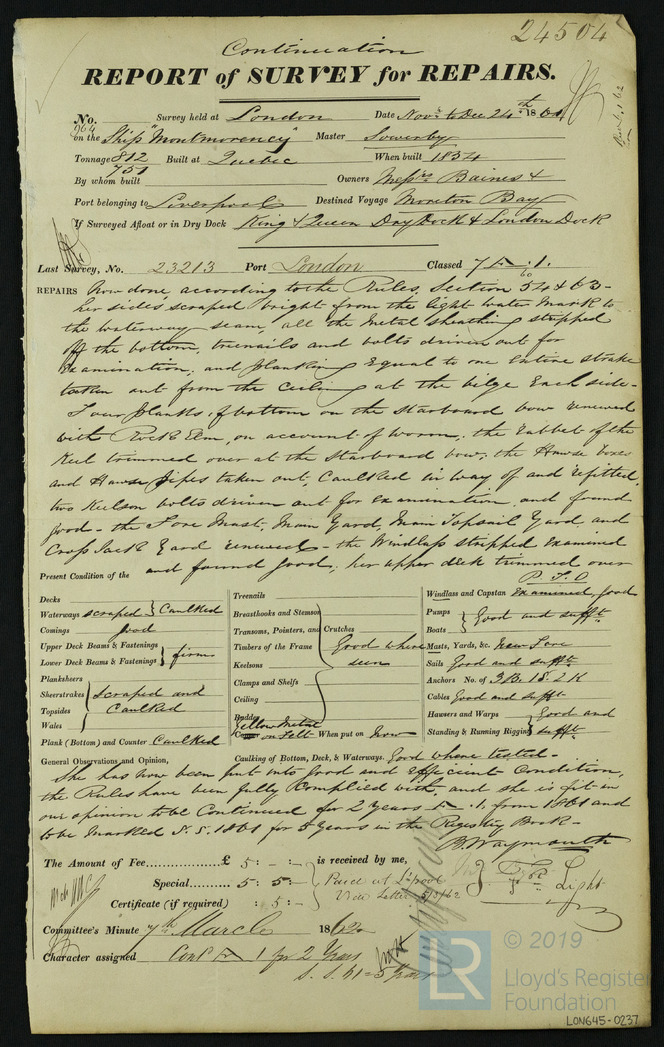 24504
Continuation
REPORT of SURVEY for REPAIRS.
No. 964 Survey held at London Date Novr to Dec 24th 1861
on the Ship "Montmorency" Master Sowerby
Tonnage 812 Built at Quebec When built 1854
751
By whom built Owners Messrs Baines &
Port belonging to Liverpool Destined Voyage Moreton Bay
If Surveyed Afloat or in Dry Dock King & Queen Dry Dock & London Dock
Last Survey, No. 23213 Port London Classed 7 1.
60
REPAIRS Now done according to the Rules, Section 54 & 63-
her sides scraped bright from the light water Mark to
the waterway seam, all the Metal sheathing stripped
off the bottom, treenails and bolts driven out for
Examination, and planking Equal to one Entire strake
taken out from the Ceiling at the bilge Each side-
Four planks of bottom on the starboard bow renewed
with Rock Elm, on account of worm, the rabbet of the
Keel trimmed over at the Starboard bow, the Hawse boxes
and Hawse pipes taken out, Caulked in way of and refitted,
two Keelson bolts driven out for examination, and found
good - the Fore Mast, Main Yard, Main Topsail Yard, and
Cross Jack Yard renewed - the Windlass stripped Examined
and found good, her upper deck trimmed over
P.T.O
Present Condition of the
Decks
Waterways scraped } Caulked
Comings good
Upper Deck Beams & Fastenings
Lower Deck Beams & Fastenings } firm
Planksheers
Sheerstrakes
Topsides
Wales
scraped and
Caulked
Plank (Bottom) and Counter Caulked
Treenails
Breasthooks and Stemson
Transoms, Pointers, and Crutches
Timbers of the Frame
Keelsons
Clamps and Shelfs
Ceiling
Rudder
Good where
seen
Yellow Metal
Copper on Felt When put on Now
Windlass and Capstan Examined, good
Pumps
Boats
} Good and sufft
Masts, Yards, &c. New Fore
Sails Good and sufft
Anchors No. of 3B. 1S. 2K
Cables Good and sufft
Hawsers and Warps
Standing & Running Rigging
} Good and
sufft
General Observations and Opinion, Caulking of Bottom, Deck, & Waterways. Good where tested-
She has now been put into good and efficient Condition,
the Rules have been fully Complied with, and she is fit in
our opinion to be Continued for 2 Years 1. from 1861 and
to be Marked S.S. 1861 for 5 Years in the Registry Book-
B. Waymouth
The Amount of Fee............... £ 5 : - : - is received by me,
Special........ 5 : 5 : - Paid at L'pool
Certificate (if required) : 5 : - Vide Letter 5/3/62
J. Light
Committee's Minute 7th March 1862
Character assigned Contd 1 for 2 Years
S.S. 61 = 5 Years
LR
© 2019
Lloyd's Register
Foundation
LON645-0237